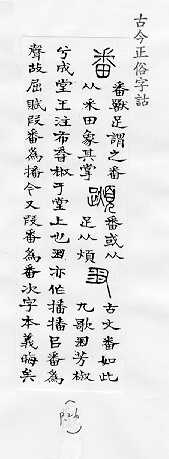 古今正俗字詁
番
番獸足謂之番
从釆田象其掌
番或从
足从煩
古文番如此
九歌𠂭芳椒
兮成堂王注布香椒于堂上也𠂭亦作播播㠯番為
聲故屈賦叚番為播今又叚番為番次字本義晦矣
(p.26)